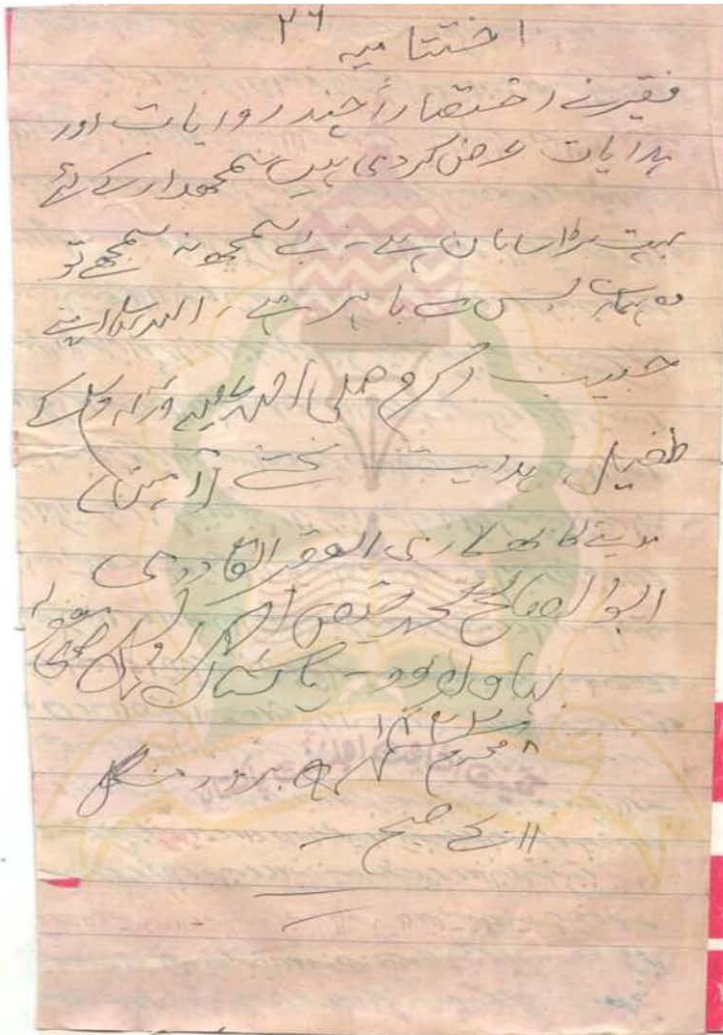 اختتامیہ ۳۶
فقیر نے اختصاراً چند روایات اور
ہدایات عرض کردی ہیں سمجھدار کے لئے
بہت بڑا سامان ہے۔ بے سمجھ نہ سمجھے تو
وہ ہمارے بس سے باہر ہے، اللہ تعالیٰ اپنے
حبیب اکرم صلی اللہ علیہ وآلہ وسلم کے
طفیل ہدایت بخشے (آمین)
مدینے کا بھکاری الفقیر القادری
ابو الصالح محمد فیض احمد اویسی رضوی غفرلہ
بہاولپور۔ پاکستان
۸ محرم بروز منگل
۱۱ بجے صبح